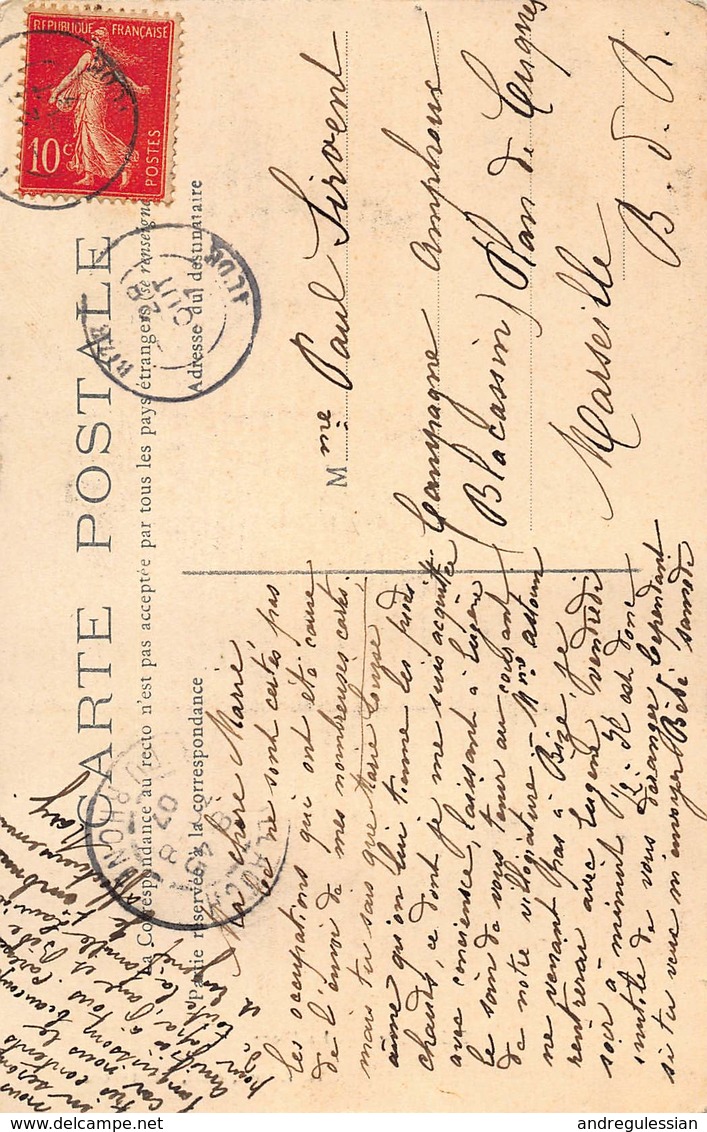 REPUBLIQUE FRANÇAISE
10c
POSTES
CARTE POSTALE
La Correspondance au recto n'est pas acceptée par tous les pays étrangers (se renseigner
Partie réservée à la correspondance
Adresse du destinataire
Mme Paul Sirvent
Campagne Amphoux
(Blacassin) Plan de Cuques
Marseille
B. d. R.
Ma chère Marie
Ce ne sont certes pas
les occupations qui ont été cause
de l'envoi de mes nombreuses cartes,
mais tu sais que Marie Louise
aime qu'on lui tienne les pieds
chauds, ce dont je me suis acquittée
avec conscience, laissant à Eugène
le soin de vous tenir au courant
de notre villégiature. Mme
ne venant pas à Bize, je
rentrerai avec Eugène vendredi
soir à minuit ½. Il est donc
inutile de vous déranger. Cependant
si tu veux m'envoyer Bébé samedi
nous
très contents
car nous
languissons beaucoup
à tous
Papa, Ange et Bébé
toute la famille
Je
andregulessian